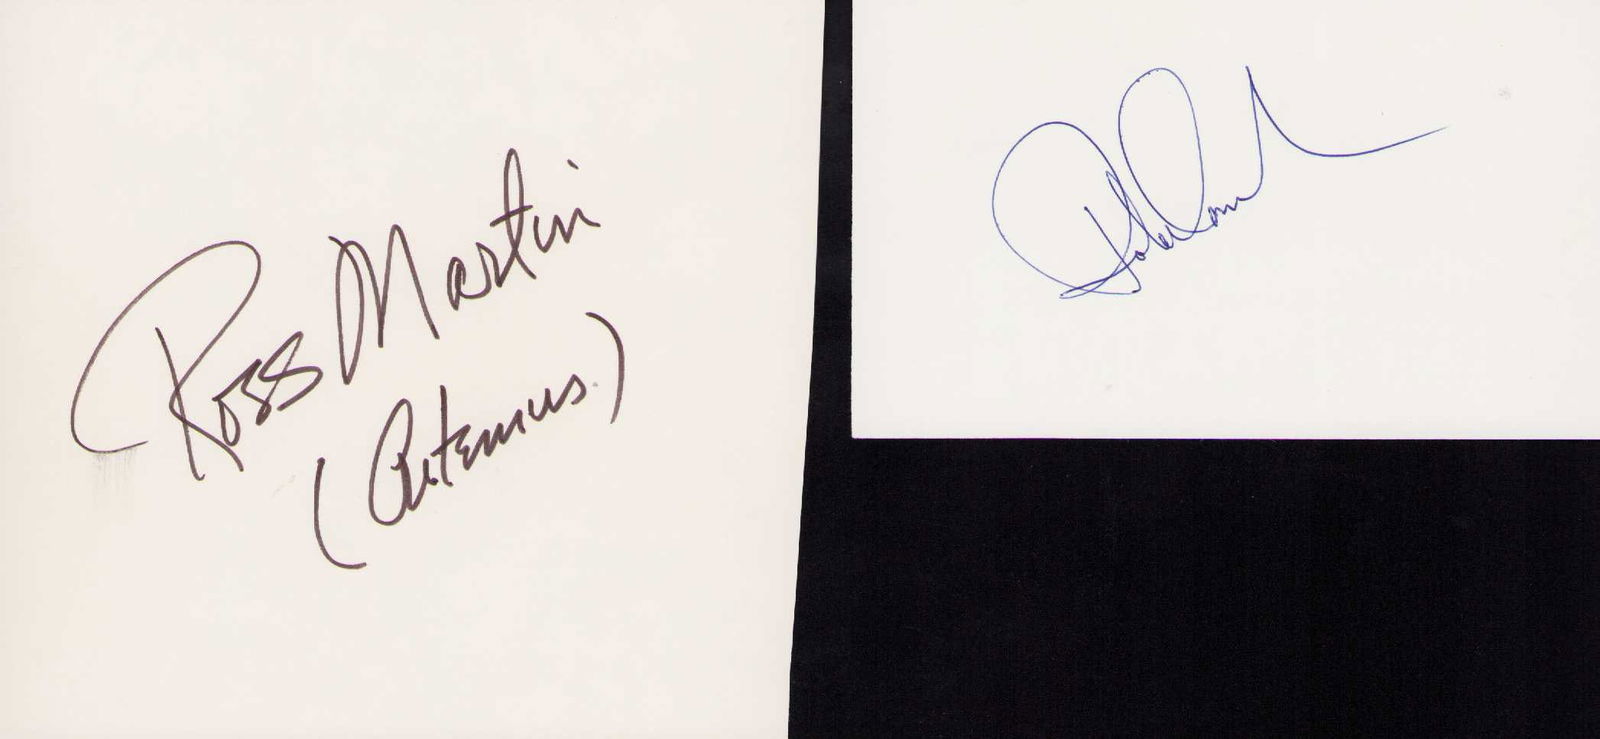 Ross Martin
(Artemus.)